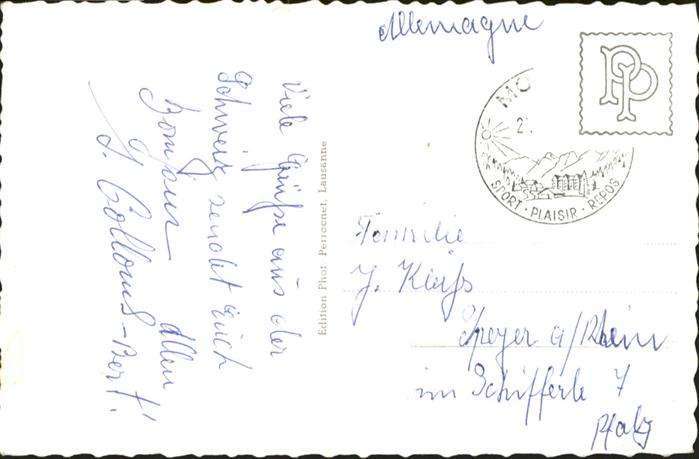 Allemagne
PP
MO
2.
SPORT · PLAISIR · REPOS
Viele Grüße aus der
Schweiz sendet Euch
Allen
Bonjour
Edition Phot Perrochet, Lausanne
Familie
J.
Speyer a/Rhein
im Schifferle 7
Pfalz